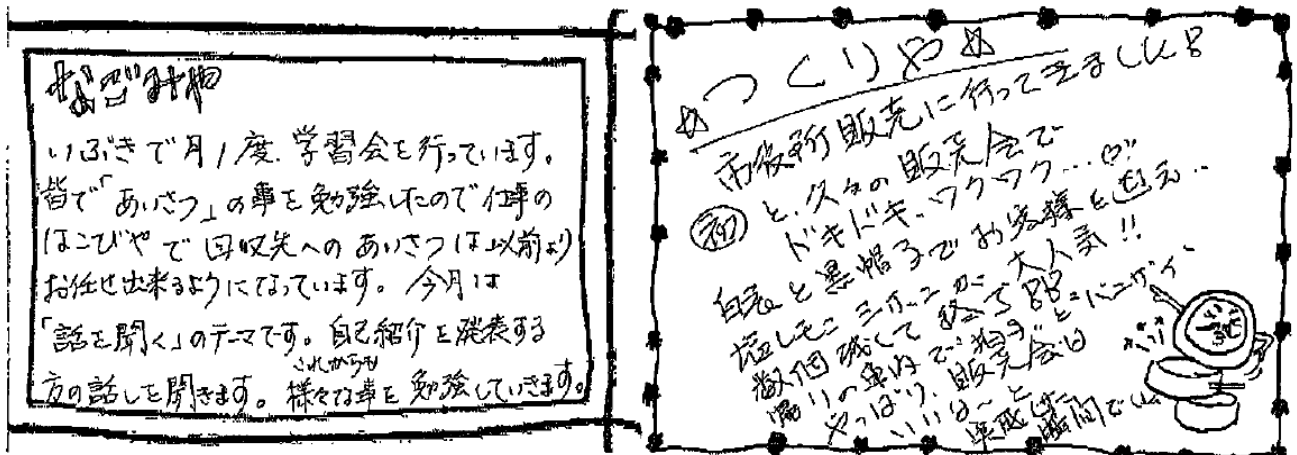 いぶきで月1度、学習会を行っています。
皆で「あいさつ」の事を勉強したので仕事の
はこびやで回収先へのあいさつは以前より
お任せ出来るようになっています。今月は
「話を聞く」のテーマです。自己紹介を発表する
方の話しを聞きます。これからも様々な事を勉強していきます。
つくりや
市役所販売に行ってきました
初 と、久々の販売会で
ドキドキ、ワクワク…♡
白衣と黒帽子でお客様を迎え…
塩レモンミサンガが大人気!!
数個残して終了
帰りの車内でご担当と
やっぱり、販売会は
いいな~と
実感した瞬間でした